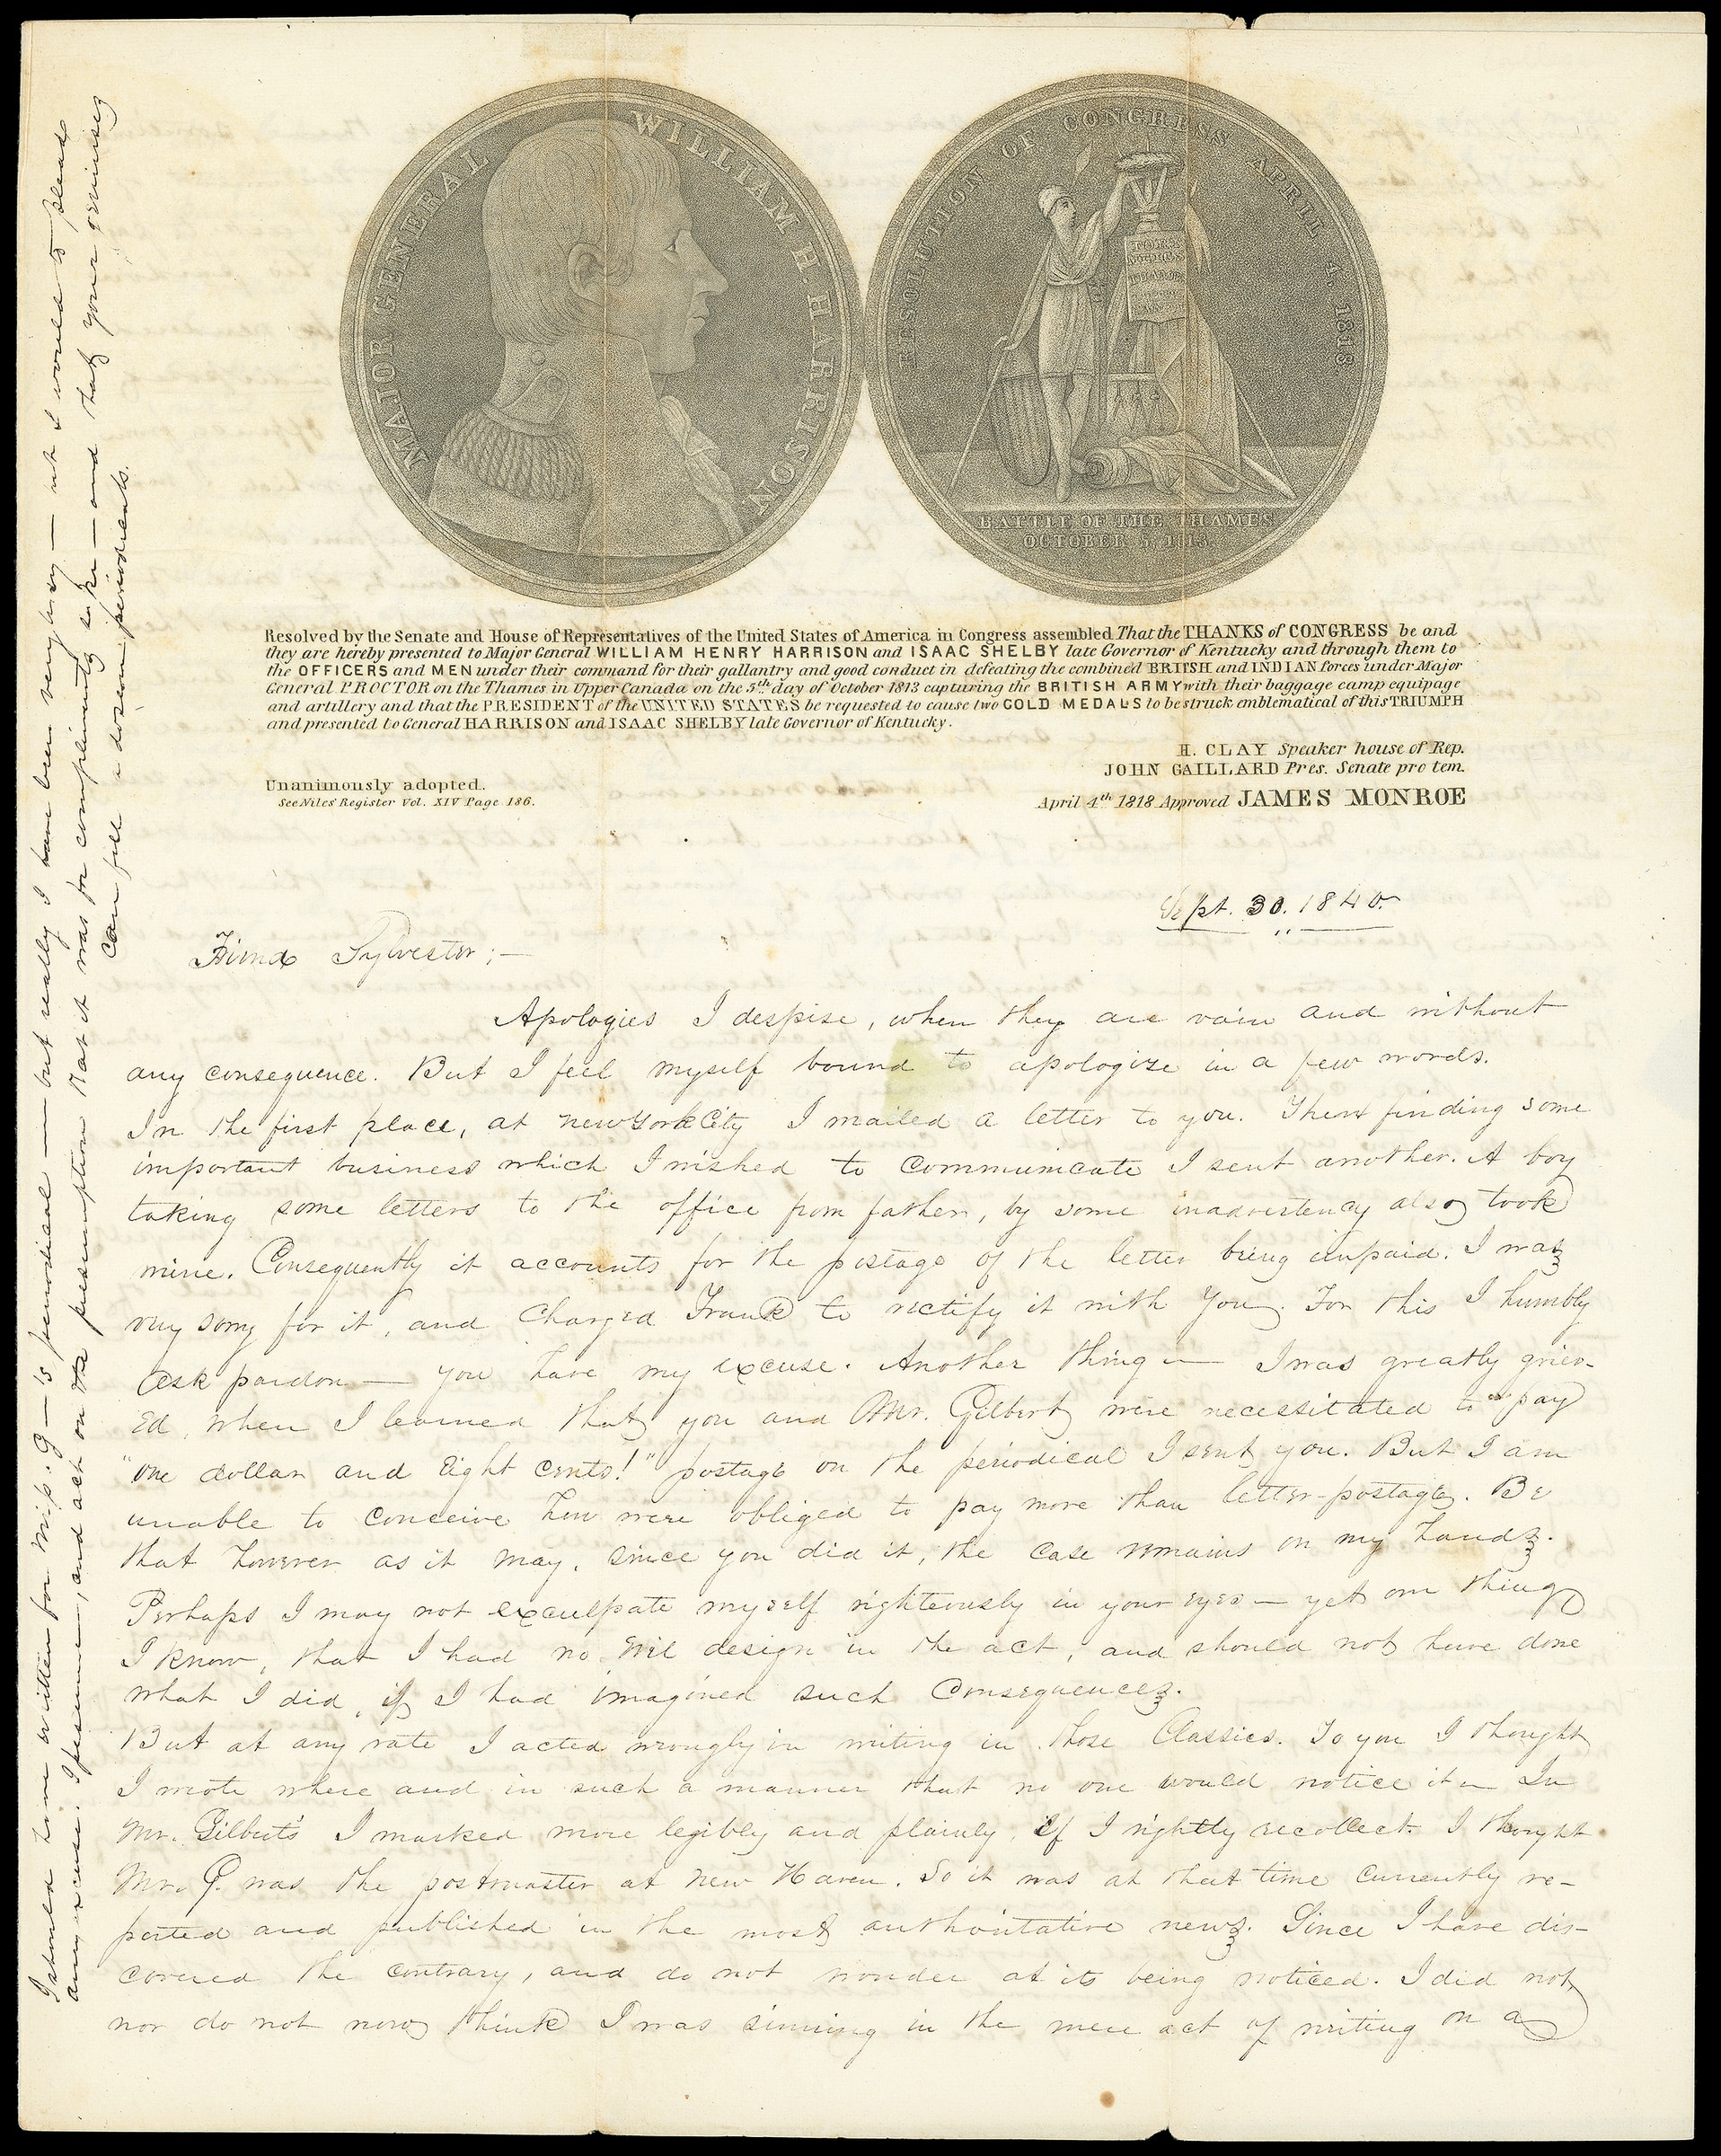 MAJOR GENERAL WILLIAM H. HARRISON
RESOLUTION OF CONGRESS APRIL 4. 1818
BATTLE OF THE THAMES
OCTOBER 5. 1813.
Resolved by the Senate and House of Representatives of the United States of America in Congress assembled That the THANKS of CONGRESS be and
they are hereby presented to Major General WILLIAM HENRY HARRISON and ISAAC SHELBY late Governor of Kentucky and through them to
the OFFICERS and MEN under their command for their gallantry and good conduct in defeating the combined BRITISH and INDIAN forces under Major
General PROCTOR on the Thames in Upper Canada on the 5th day of October 1813 capturing the BRITISH ARMY with their baggage camp equipage
and artillery and that the PRESIDENT of the UNITED STATES be requested to cause two GOLD MEDALS to be struck emblematical of this TRIUMPH
and presented to General HARRISON and ISAAC SHELBY late Governor of Kentucky.
H. CLAY Speaker house of Rep.
JOHN GAILLARD Pres. Senate pro tem.
Unanimously adopted.
See Niles' Register Vol. XIV Page 186.
April 4th 1818 Approved JAMES MONROE
Sept. 30. 1840.
Friend Sylvester;—
Apologies I despise, when they are vain and without
any consequence. But I feel myself bound to apologize in a few words.
In the first place, at New York City I mailed a letter to you. Then finding some
important business which I wished to communicate I sent another. A boy
taking some letters to the office from father, by some inadvertency also took
mine. Consequently it accounts for the postage of the letter being unpaid. I was
very sorry for it, and charged Frank to rectify it with you. For this I humbly
ask pardon — you have my excuse. Another thing — I was greatly griev-
ed, when I learned that you and Mr. Gilbert were necessitated to pay
"one dollar and eight cents!" postage on the periodical I sent you. But I am
unable to conceive how were obliged to pay more than letter-postage. Be
that however as it may, since you did it, the case remains on my hands.
Perhaps I may not exculpate myself righteously in your eyes — yet one thing
I know, that I had no evil design in the act, and should not have done
what I did, if I had imagined such consequences.
But at any rate I acted wrongly in writing in those Classics. To you I thought
I wrote where and in such a manner that no one would notice it — In
Mr. Gilbert's I marked more legibly and plainly, if I rightly recollect. I thought
Mr. G. was the postmaster at New Haven. So it was at that time currently re-
ported and published in the most authoritative news. Since I have dis-
covered the contrary, and do not wonder at its being noticed. I did not
nor do not now think I was sinning in the mere act of writing on a
I should have written for G— 's periodical — but really I have been very busy — not I would to plead
any excuse. I presume, and act on the presumption that it was for compliment's sake — and that your promises
can fill a dozen periodicals.